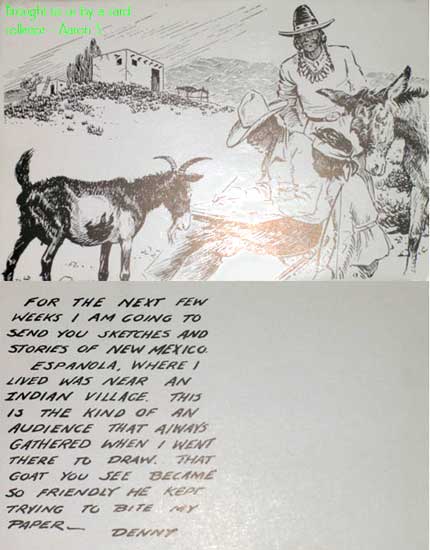 Brought to us by a card
collector - Aaron S
FOR THE NEXT FEW
WEEKS I AM GOING TO
SEND YOU SKETCHES AND
STORIES OF NEW MEXICO.
ESPANOLA, WHERE I
LIVED WAS NEAR AN
INDIAN VILLAGE. THIS
IS THE KIND OF AN
AUDIENCE THAT ALWAYS
GATHERED WHEN I WENT
THERE TO DRAW. THAT
GOAT YOU SEE BECAME
SO FRIENDLY HE KEPT
TRYING TO BITE MY
PAPER—
DENNY